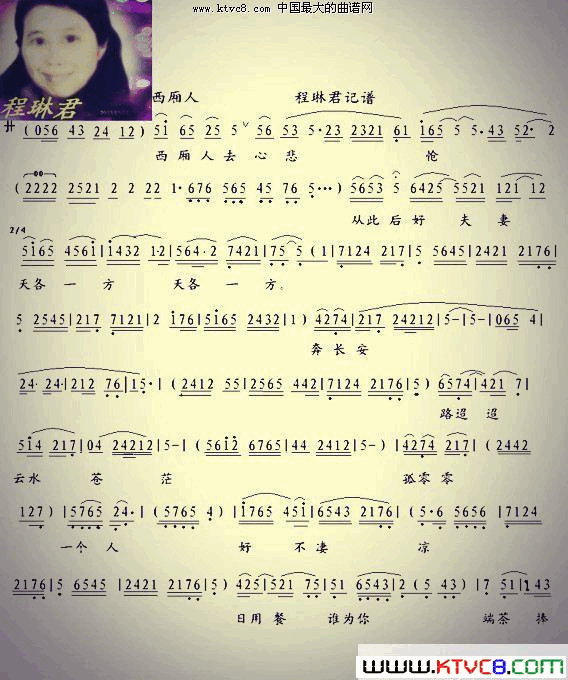 www.ktvc8.com 中国最大的曲谱网
程琳君
西厢人 程琳君记谱
サ (056 43 24 12) 5i 65 25 5 ∨ 56 53 5·23 2321 61 i65 5 5·43 52· 2
西厢人去心悲 怆
(2222 2521 2 2 22 1·676 565 45 76 5···) 5653 5 6425 5521 121 12
从此后好 夫 妻
2/4
5i65 456i|i432 12|564·2 7421|75 5(1|7124 217|5 5645|2421 2176|
天各 一 方 天各 一 方。
5 2545|217 7121|2 i76|5i65 2432|1) 4274|217 24212|5-|5-|065 4|
奔 长 安
24· 24·|212 76|15·|(2412 55|2565 442|7124 2176|5) 6574|421 7|
路迢 迢
5i4 217|04 24212|5-|(56i2 6765|44 2412|5-) 4274 217|(2442
云水 苍 茫 孤零 零
127)|5765 24·|(5765 4)|i765 45i|6543 217|(5·6 5656|7124
一个 人 好 不 凄 凉
2176|5 6545|2421 2176|5) 425|521 75|51 6543|2(5 43)|7 51|143
日用 餐 谁为你 端茶 捧
www.KTVC8.com